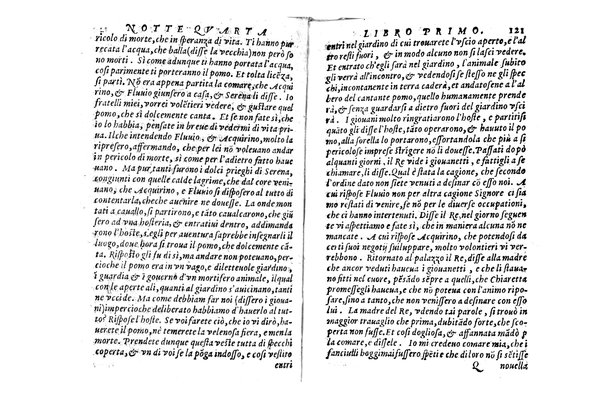 NOTTE QVARTA
ricolo di morte, che in speranza di vita. Ti hanno pur
recata l'acqua, che balla (disse la vecchia) non però so
no morti. Sì come adunque ti hanno portata l'acqua,
così parimenti ti porteranno il pomo. Et tolta licẽza,
si partì. Nõ era appena partita la comare, che Acqui
rino, & Fluuio giunsero, & a' Serena li disse. Io
fratelli miei, vorrei volẽtieri vedere, & gustare quel
pomo, che sì dolcemente canta. Et se non fate sì, che
io lo habbia, pensate in breue di vedermi di vita pri-
ua. Ilche intendendo Fluuio, & Acquirino, molto la
ripresero, affermando, che per lei nõ voleuano andar
in pericolo di morte, sì come per l'adietro fatto haue
uano. Ma pur, tanti furono i dolci prieghi di Serena,
congiunti con quelle calde lagrime, che dal core veni-
uano, che Acquirino, & Fluuio si disposero al tutto di
contentarla, cheche auenire ne douesse. La onde mon
tati a cauallo, si partirono, & tãto caualcarono, che giũ
sero ad vna hosteria, & entratiui dentro, addimanda
rono l'hoste, s'egli per auentura saprebbe insegnarli il
luogo, doue hora si troua il pomo, che dolcemente cã-
ta. Rispose gli fu di sì, ma andare non poteuano, per-
cioche il pomo era in vn vago, e diletteuole giardino,
in guardia & i gouerno d'un mortifero animale, il qual
con le aperte ali, quanti al giardino s'auicinano, tanti
ne vccide. Ma come debbiam far noi (dissero i gioua
ni) impercioche deliberato habbiamo d'hauerlo al tut-
to? Rispose l'hoste. Se voi farete ciò, che io vi dirò, ha-
uerete il pomo, nè temerete la velenosa fiera, e men la
morte. Prendete dunque questa veste tutta di specchi
coperta, & vn di voi se la põga indosso, e così vestito
entri
LIBRO PRIMO. 121
entri nel giardino di cui trouarete l'vscio aperto, e l'al
tro resti fuori, & dall'animale in modo alcuno non si
lasci vedere. Et entrato ch'egli sarà nel giardino, l'animale subito
gli verrà all'incontro, & vedendosi se stesso ne gli spec
chi, incontanente in terra caderà, et andatosene a l'al
bero del cantante pomo, quello humanamente prende
rà, & senza guardarsi a dietro fuori del giardino vsci
rà. I giouani molto ringratiarono l'hoste, e partitisi
quãto gli disse l'hoste, tãto operarono, & hauuto il po
mo, alla sorella lo portarono, essortandola che più a sì
pericolose imprese sforzare nõ li douesse. Passati dopò
alquanti giorni. il Re vide i giouanetti, e fattigli a se
chiamare, li disse. Qual è stata la cagione, che secondo
l'ordine dato non siete venuti a desinar cõ esso noi. A
cui rispose Fluuio non per altra cagione Signore ci sia
mo restati di venire, se nõ per le diuerse occupationi,
che ci hanno intertenuti. Disse il Re, nel giorno seguen
te vi aspettiamo e fate sì, che in maniera alcuna nõ ne
mancate. A cui rispose Acquirino, che potendosi da
certi suoi negotij suiluppare, molto volontieri vi ver-
rebbono. Ritornato al palazzo il Re, disse alla madre
che ancor veduti haueua i giouanetti, e che li staua-
no fitti nel cuore, pẽsãdo sempre a quelli, che Chiaretta
promessegli haueua, e che nõ potea con l'animo ripo-
sare, sino a tanto, che non venissero a desinare con esso
lui. La madre del Re, vdendo tai parole, si trouò in
maggior trauaglio che prima, dubitãdo forte, che sco-
perta non fusse. Et così dogliosa, & affannata mãdò p
la comare, e dissele. Io mi credeuo comare mia, che i
fanciulli hoggimai fussero spẽti e che di loro nõ si sẽtisse
Q nouella